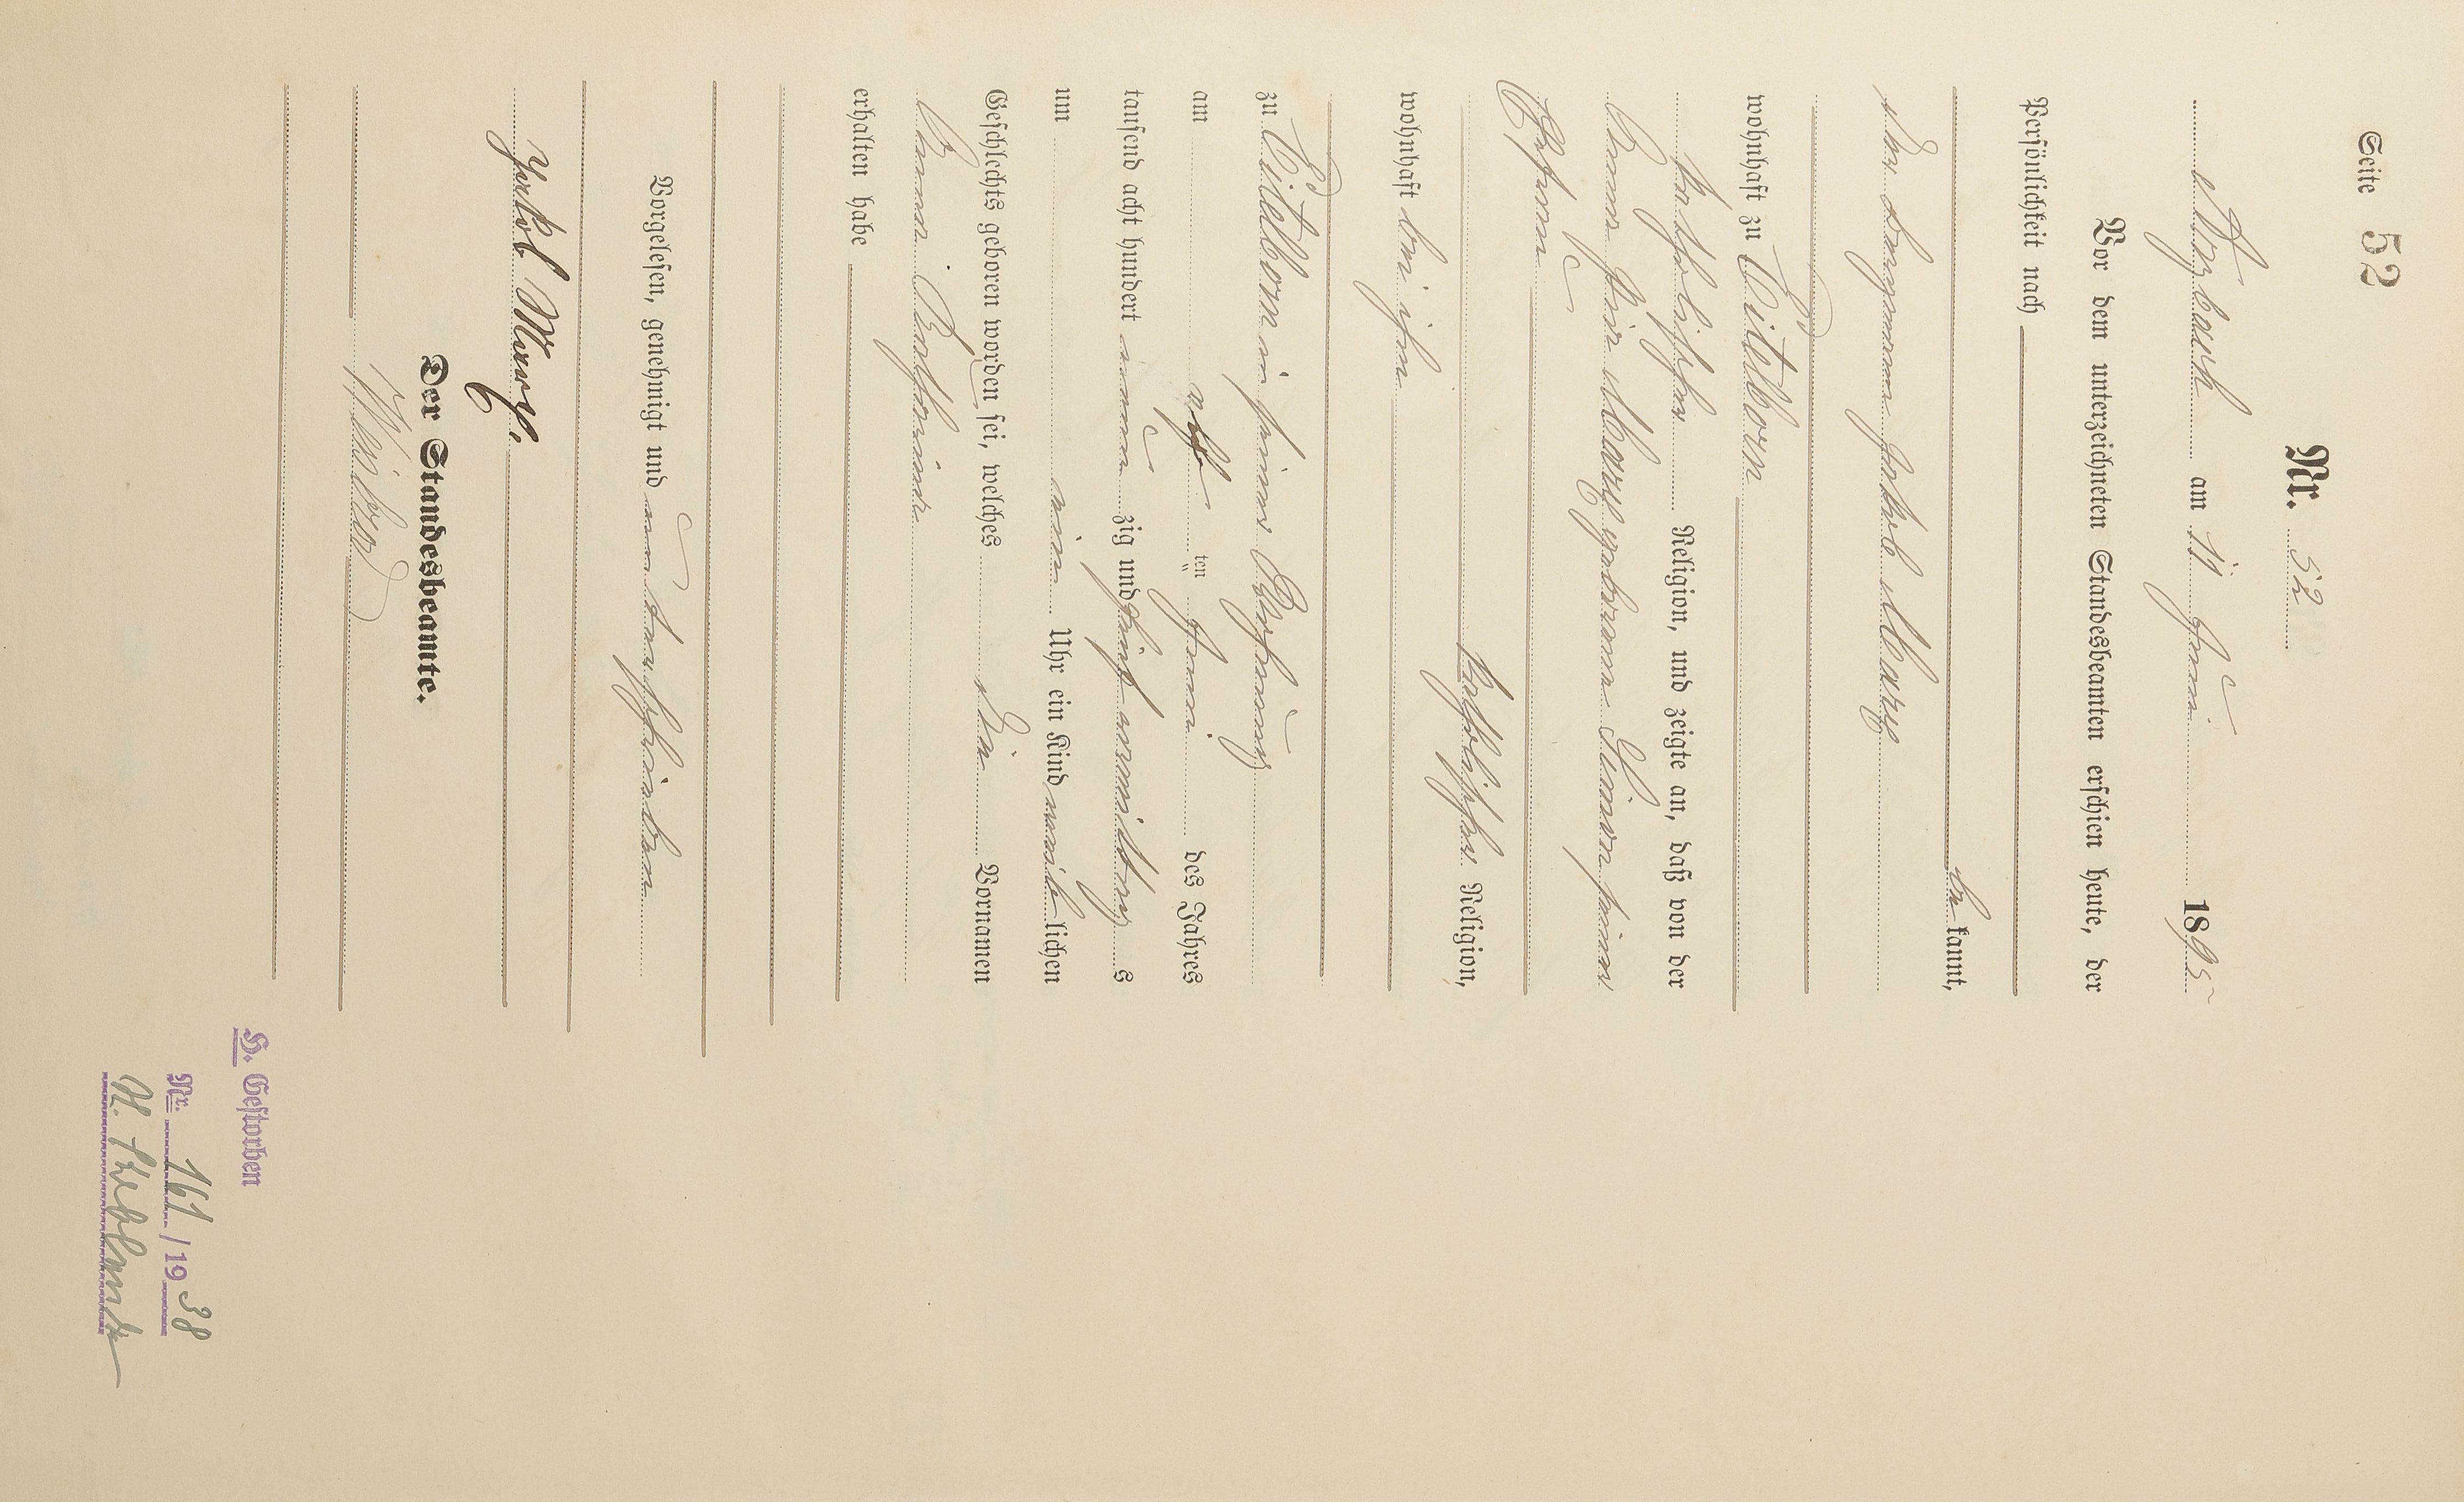 Seite 52
Nr. 52
Arzbach am 11 Juni 1895
Vor dem unterzeichneten Standesbeamten erschien heute, der
Persönlichkeit nach
bekannt,
der Bergmann Jakob Marx
wohnhaft zu Eitelborn
katholischer Religion, und zeigte an, daß von der
Anna Marx geborenen Simon seiner
Ehefrau
katholischer Religion,
wohnhaft bei ihm
zu Eitelborn in seiner Wohnung
am acht ten Juni des Jahres
tausend acht hundert neunzig und fünf vormittags
um ein Uhr ein Kind weiblichen
Geschlechts geboren worden sei, welches die Vornamen
Anna Katharina
erhalten habe
Vorgelesen, genehmigt und unterschrieben
Jakob Marx.
Der Standesbeamte.
H. Gestorben
Nr. 161 / 1938